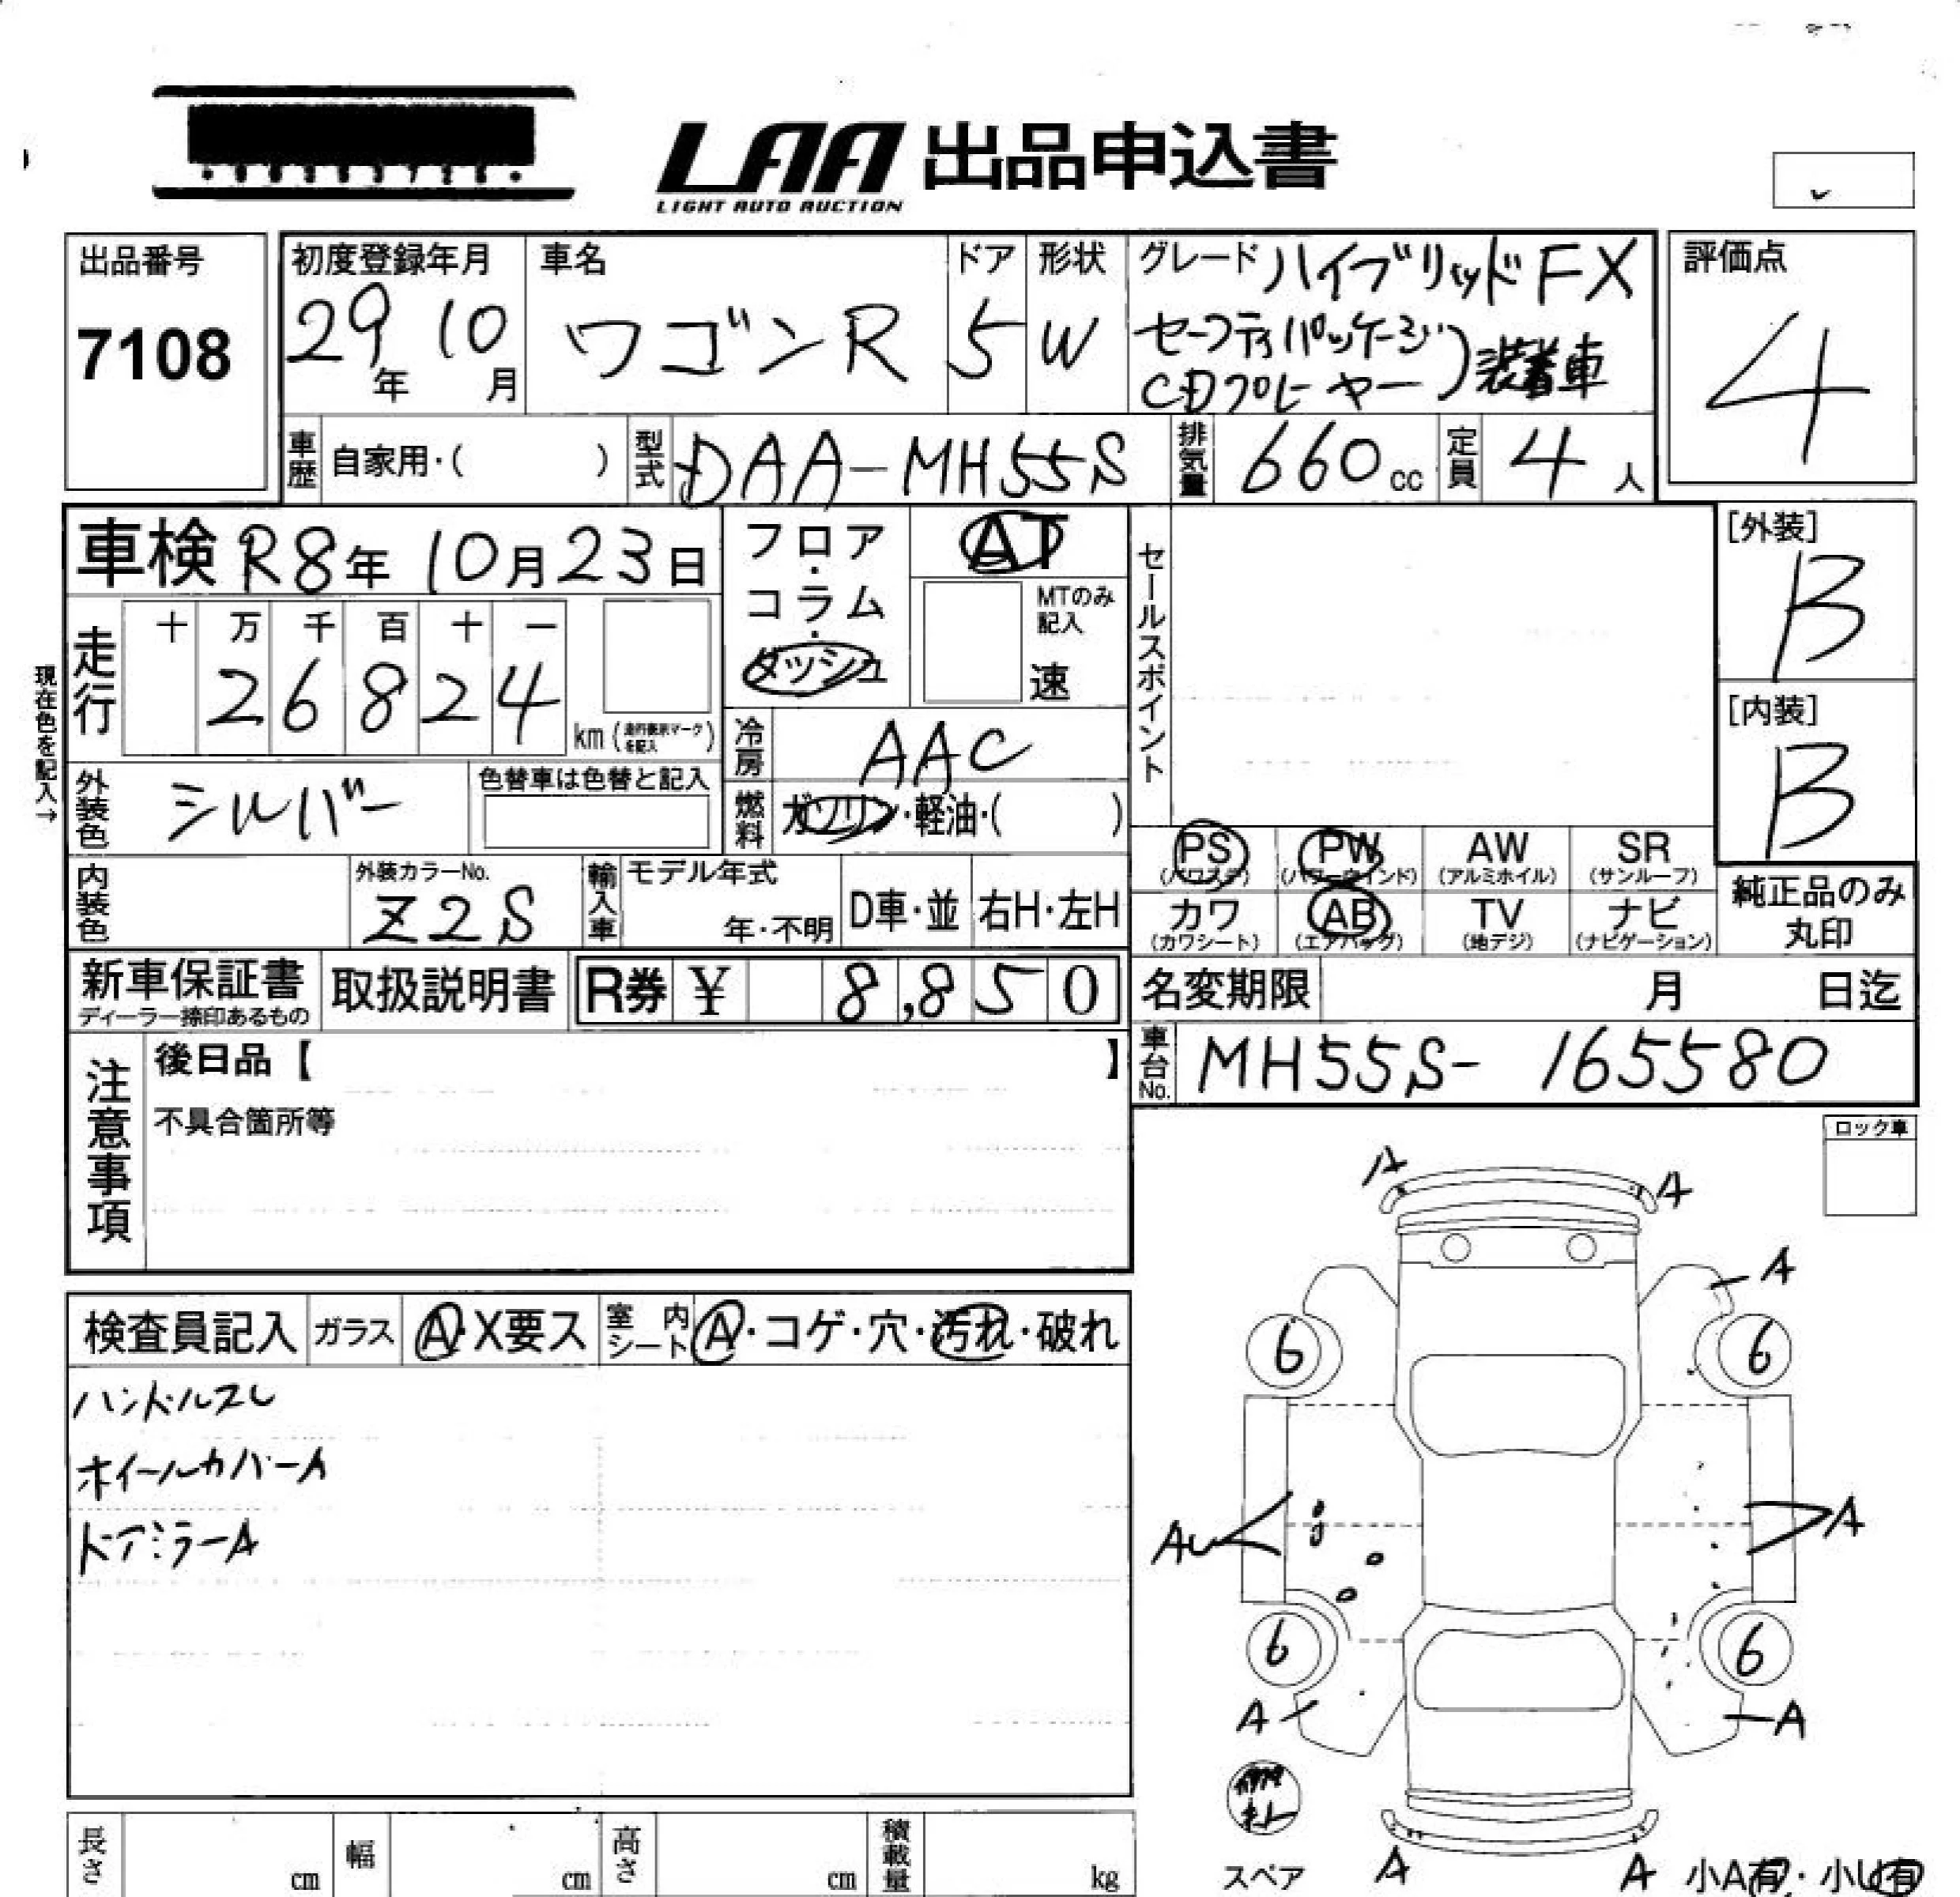 LAA 出品申込書
LIGHT AUTO AUCTION
出品番号
7108
初度登録年月
29年 10月
車名
ワゴンR
ドア
5
形状
W
グレード ハイブリッドFX
セーフティパッケージ
CDプレーヤー)装着車
評価点
4
車歴 自家用・( )
型式 DAA-MH55S
排気量 660cc
定員 4人
車検 R8年 10月23日
フロア・コラム・ダッシュ
AT
MTのみ記入
速
セールスポイント
[外装]
B
[内装]
B
現在色を記入→
走行
十 万 千 百 十 一
2 6 8 2 4
km(走行表示マークを記入)
冷房 AAC
外装色 シルバー
色替車は色替と記入
燃料 ガソリン・軽油・( )
PS (パワステ)
PW (パワーウインド)
AW (アルミホイル)
SR (サンルーフ)
内装色
外装カラーNo.
Z2S
輸入車
モデル年式
年・不明
D車・並
右H・左H
カワ (カワシート)
AB (エアバッグ)
TV (地デジ)
ナビ (ナビゲーション)
純正品のみ丸印
新車保証書
ディーラー捺印あるもの
取扱説明書
R券 ¥ 8,850
名変期限 月 日迄
注意事項
後日品【 】
不具合箇所等
車台No. MH55S-165580
ロック車
検査員記入
ガラス A・X要ス
室内シート A・コゲ・穴・汚れ・破れ
ハンドルスレ
ホイールカバーA
ドアミラーA
A
A
A
6
6
AU
A
6
6
A
A
スペア
A
A
小A有・小U有
長さ cm
幅 cm
高さ cm
積載量 kg